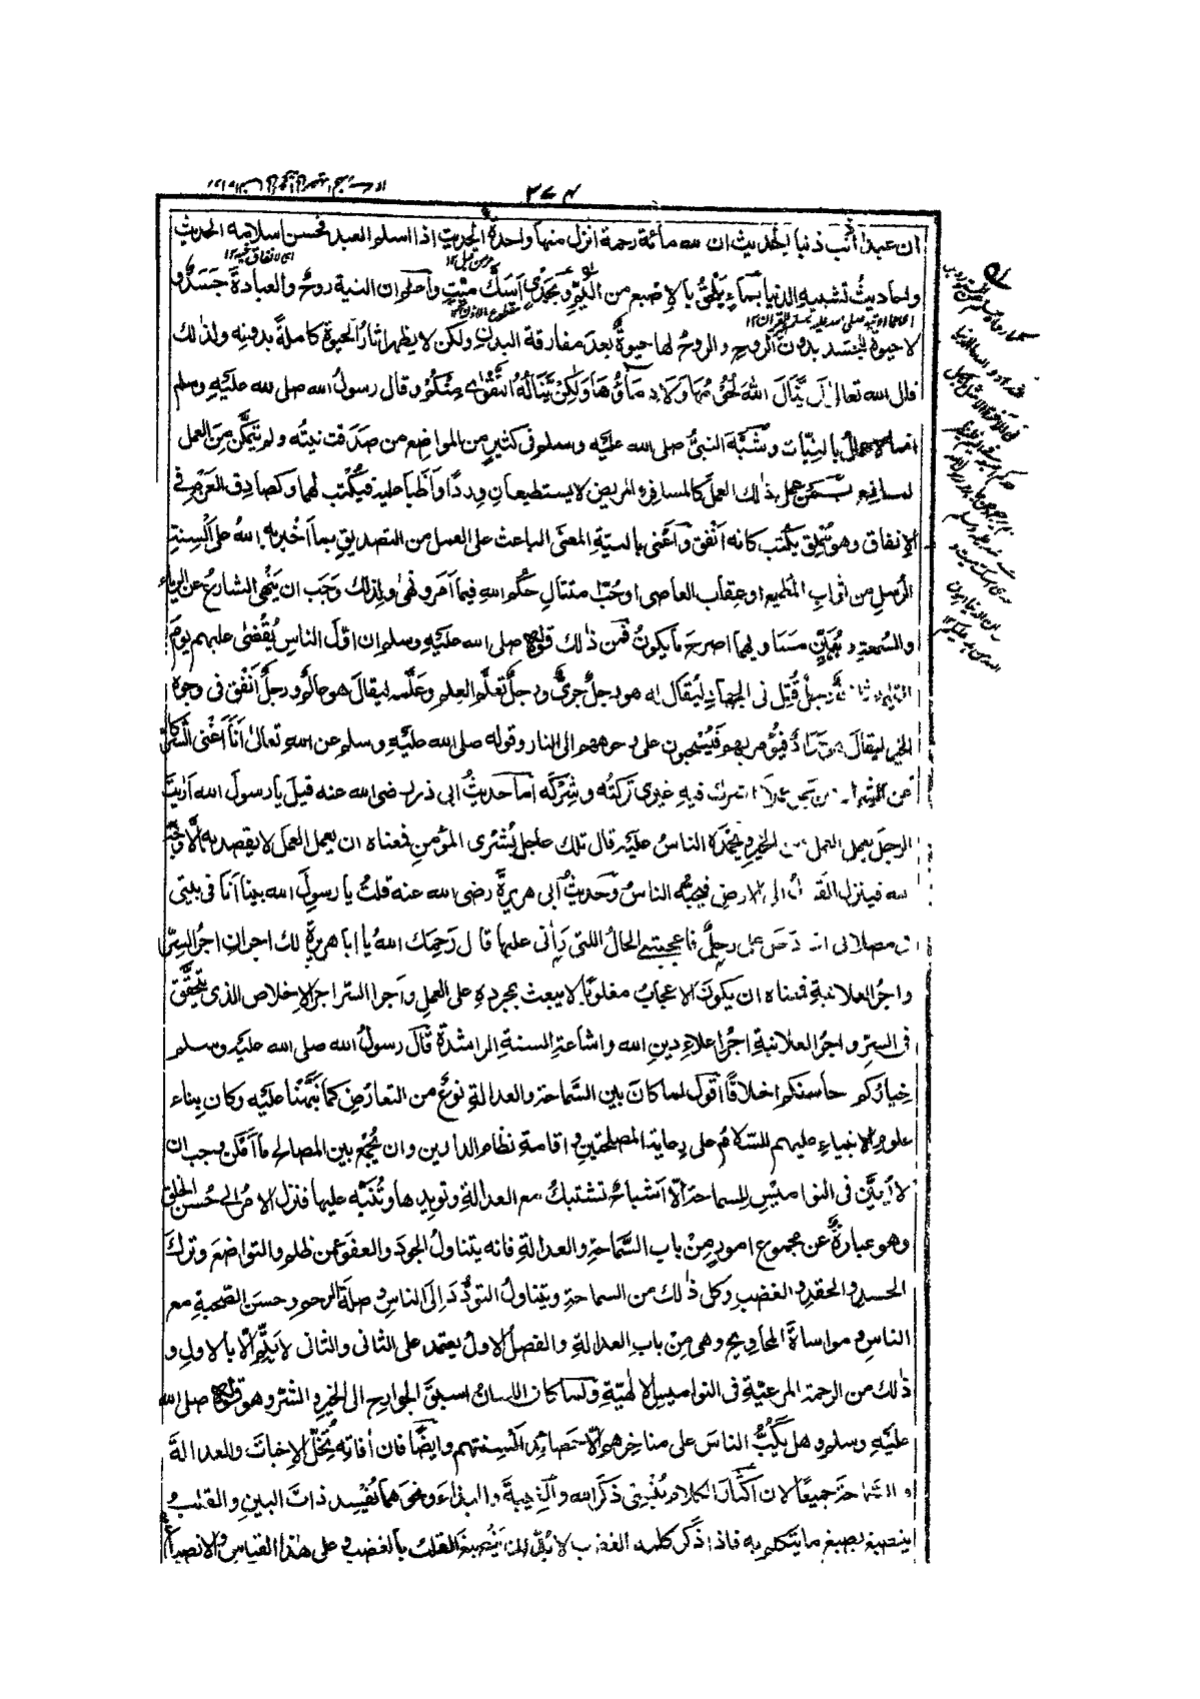 ٣٧٤
ان عبدا اذنب ذنبا الحديث ان لله مائة رحمة انزل منها واحدة الحديث اذا اسلم العبد فحسن اسلامه الحديث
واحاديث تشبيه الدنيا بماء يلحق بالاصبع من اليم وبجدي اسك ميت واعلم ان النية روح والعبادة جسد و
لا حيوة للجسد بدون الروح والروح لها حيوة بعد مفارقة البدن ولكن لا يظهر اثار الحيوة كاملة بدونه ولذلك
قال الله تعالى لن ينال الله لحومها ولا دماؤها ولكن يناله التقوى منكم وقال رسول الله صلى الله عليه وسلم
انما الاعمال بالنيات وشبه النبي صلى الله عليه وسلم في كثير من المواضع من صدقت نيته ولم يتمكن من العمل
لمانع بمن عمل ذلك العمل كالمسافر والمريض لا يستطيعان وردا واظبا عليه فيكتب لهما وكصادق العزم في
الانفاق وهو مملق يكتب كانه انفق واعنى بالنية المعنى الباعث على العمل من التصديق بما اخبر به الله على السنة
الرسل من ثواب المطيع او عقاب العاصى او حب امتثال حكم الله فيما امر ونهى ولذلك وجب ان ينهى الشارع عن الرياء
والسمعة ويبين مساويهما اصرح ما يكون فمن ذلك قوله صلى الله عليه وسلم ان اول الناس يقضى عليهم يوم
القيامة ثلثة رجل قتل في الجهاد ليقال له هو رجل جرى ورجل تعلم العلم وعلمه ليقال هو عالم ورجل انفق في وجوه
الخير ليقال هو جواد فيؤمر بهم فيسحبون على وجوههم الى النار وقوله صلى الله عليه وسلم عن الله تعالى انا اغنى الشركاء
عن الشرك من عمل عملا اشرك فيه غيرى تركته وشركه اما حديث ابى ذر رضى الله عنه قيل يا رسول الله ارايت
الرجل يعمل العمل من الخير ويحمده الناس عليه قال تلك عاجل بشرى المؤمن فمعناه ان يعمل العمل لا يقصد به الا وجه
الله فينزل القبول الى الارض فيحبه الناس وحديث ابى هريرة رضى الله عنه قلت يا رسول الله بينا انا في بيتى
في مصلائى اذ دخل على رجل فاعجبتنى الحال اللتى رأنى عليها قال رحمك الله يا ابا هريرة لك اجران اجر السر
واجر العلانية فمعناه ان يكون الاعجاب مغلوبا لا يبعث بمجرده على العمل واجر السر اجر الاخلاص الذى يتحقق
في السر واجر العلانية اجر اعلاء دين الله واشاعة السنة الراشدة قال رسول الله صلى الله عليه وسلم
خياركم احاسنكم اخلاقا اقول لما كان بين السماحة والعدالة نوع من التعارض كما نبهنا عليه وكان بناء
علوم الانبياء عليهم السلام على رعاية المصلحتين واقامة نظام الدارين وان يجمع بين المصالح ما امكن وجب ان
لا يبين في النواميس للسماحة الا اشياء تشتبك مع العدالة وتؤيدها وتنبه عليها فنزل الامر الى حسن الخلق
وهو عبارة عن مجموع امور من باب السماحة والعدالة فانه يتناول الجود والعفو عمن ظلم والتواضع وترك
الحسد والحقد والغضب وكل ذلك من السماحة ويتناول التودد الى الناس وصلة الرحم وحسن الصحبة مع
الناس ومواساة المحاويج وهى من باب العدالة والفصل الاول يعتمد على الثانى والثانى لا يتم الا بالاول و
ذلك من الرحمة المرعية في النواميس الالهية ولما كان اللسان اسبق الجوارح الى الخير والشر وهو قوله صلى الله
عليه وسلم وهل يكب الناس على مناخرهم الا حصائد السنتهم وايضا فان افاته تخل الاخبات والعدالة
والسماحة جميعا لان اكثار الكلام ينسى ذكر الله والغيبة والبذاء ونحوهما تفسد ذات البين والقلب
ينصبغ بصبغ ما يتكلم به فاذا ذكر كلمة الغضب لا بد ان ينصبغ القلب بالغضب وعلى هذا القياس والانصباغ